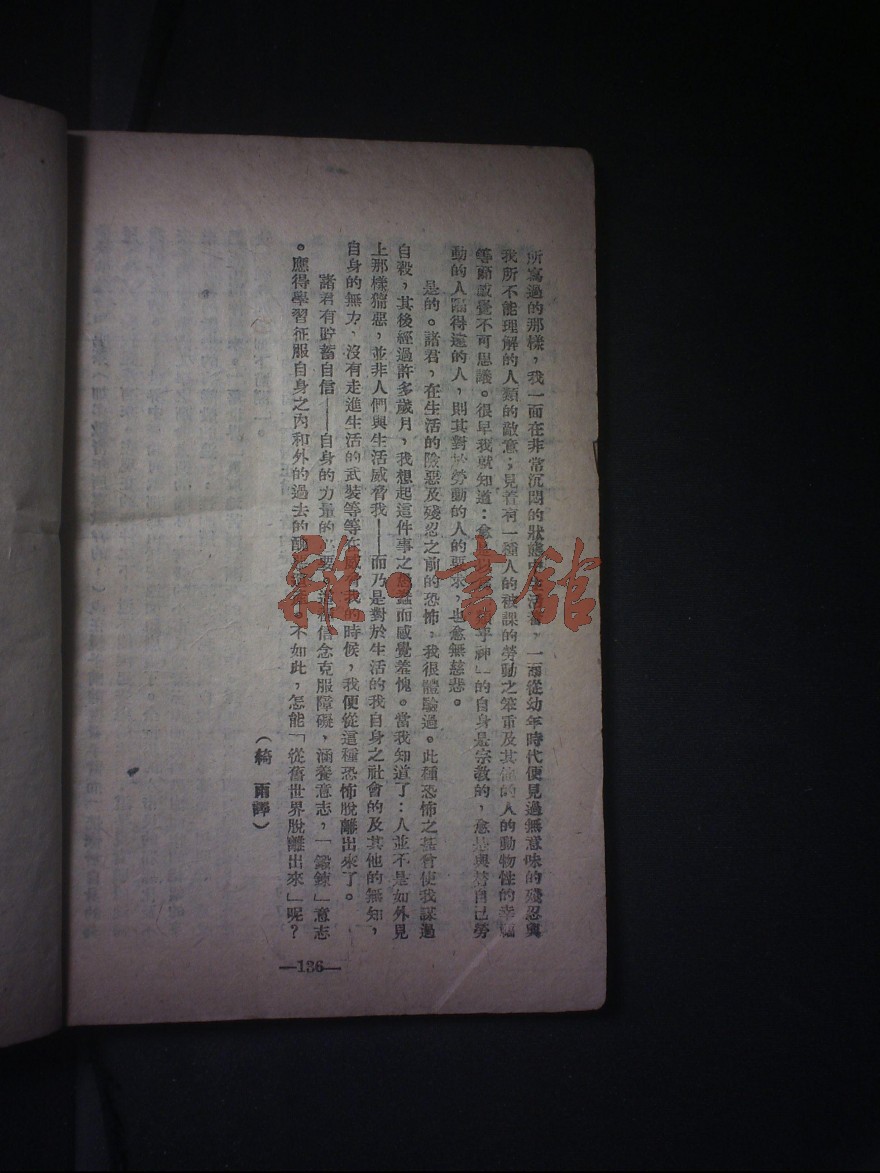 所寫過的那樣，我一面在非常沉悶的狀態中生活着，一面從幼年時代便見過無意味的殘忍與
我所不能理解的人類的敵意；見着有一種人的被課的勞動之笨重及其他的人的動物性的幸福
等而感覺不可思議。很早我就知道：愈 乎神」的自身是宗教的，愈是與替自己勞
動的人隔得遠的人，則其對於勞動的人的要求，也愈無慈悲。
是的。諸君，在生活的險惡及殘忍之前的恐怖，我很體驗過。此種恐怖之甚會使我謀過
自殺，其後經過許多歲月，我想起這件事之愚蠢而感覺羞愧。當我知道了：人並不是如外見
上那樣猾惡，並非人們與生活威脅我——而乃是對於生活的我自身之社會的及其他的無知，
自身的無力，沒有走進生活的武裝等等在威脅我的時候，我便從這種恐怖脫離出來了。
諸君有貯蓄自信——自身的力量的 要。這種信念克服障礙，涵養意志，「鍛鍊」意志
。應得學習征服自身之內和外的過去的 。不如此，怎能「從舊世界脫離出來」呢？
（綺雨譯）
—136—
雜·書舘